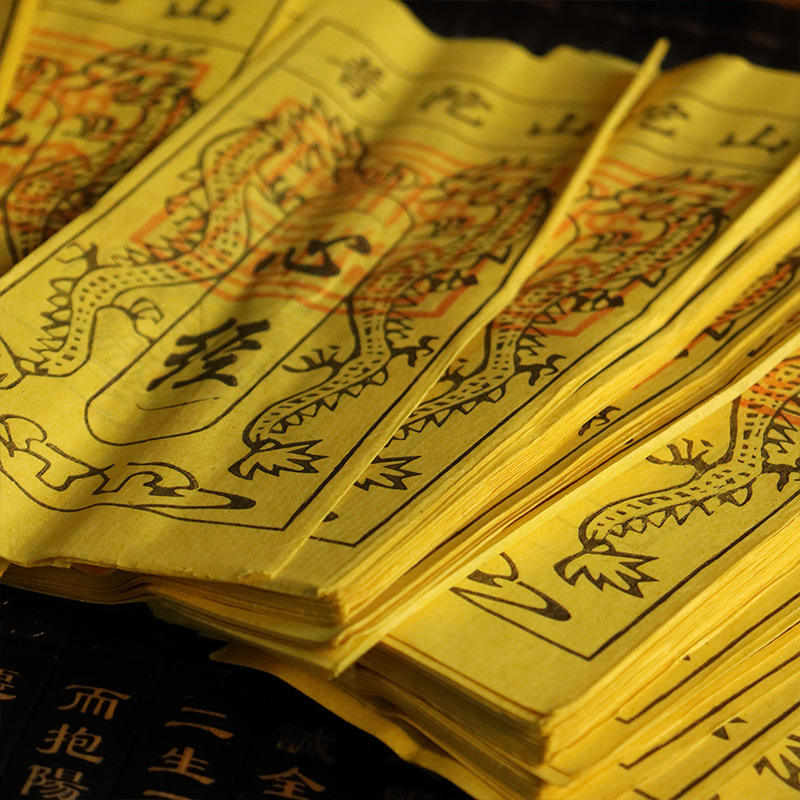 山
普陀山
心经
山
誠全
二生
而抱陽